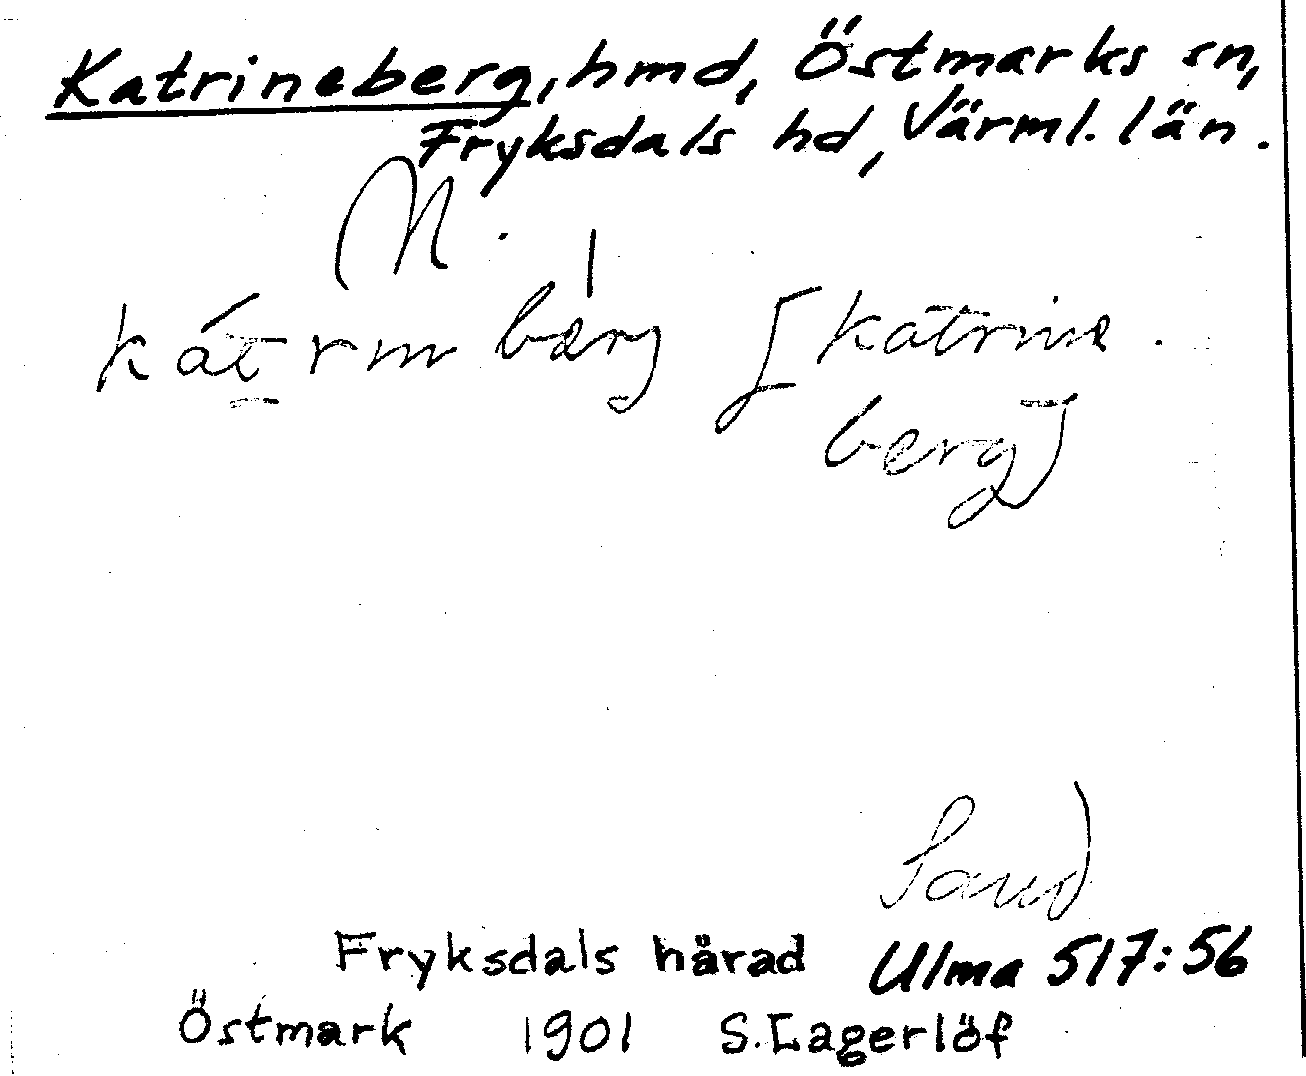 Katrineberg, hmd, Östmarks sn,
Fryksdals hd, Värml. län.
N.
kátrinbærg [katrine.
berg]
Sand
Fryksdals härad Ulma 517:56
Östmark 1901 S. Lagerlöf